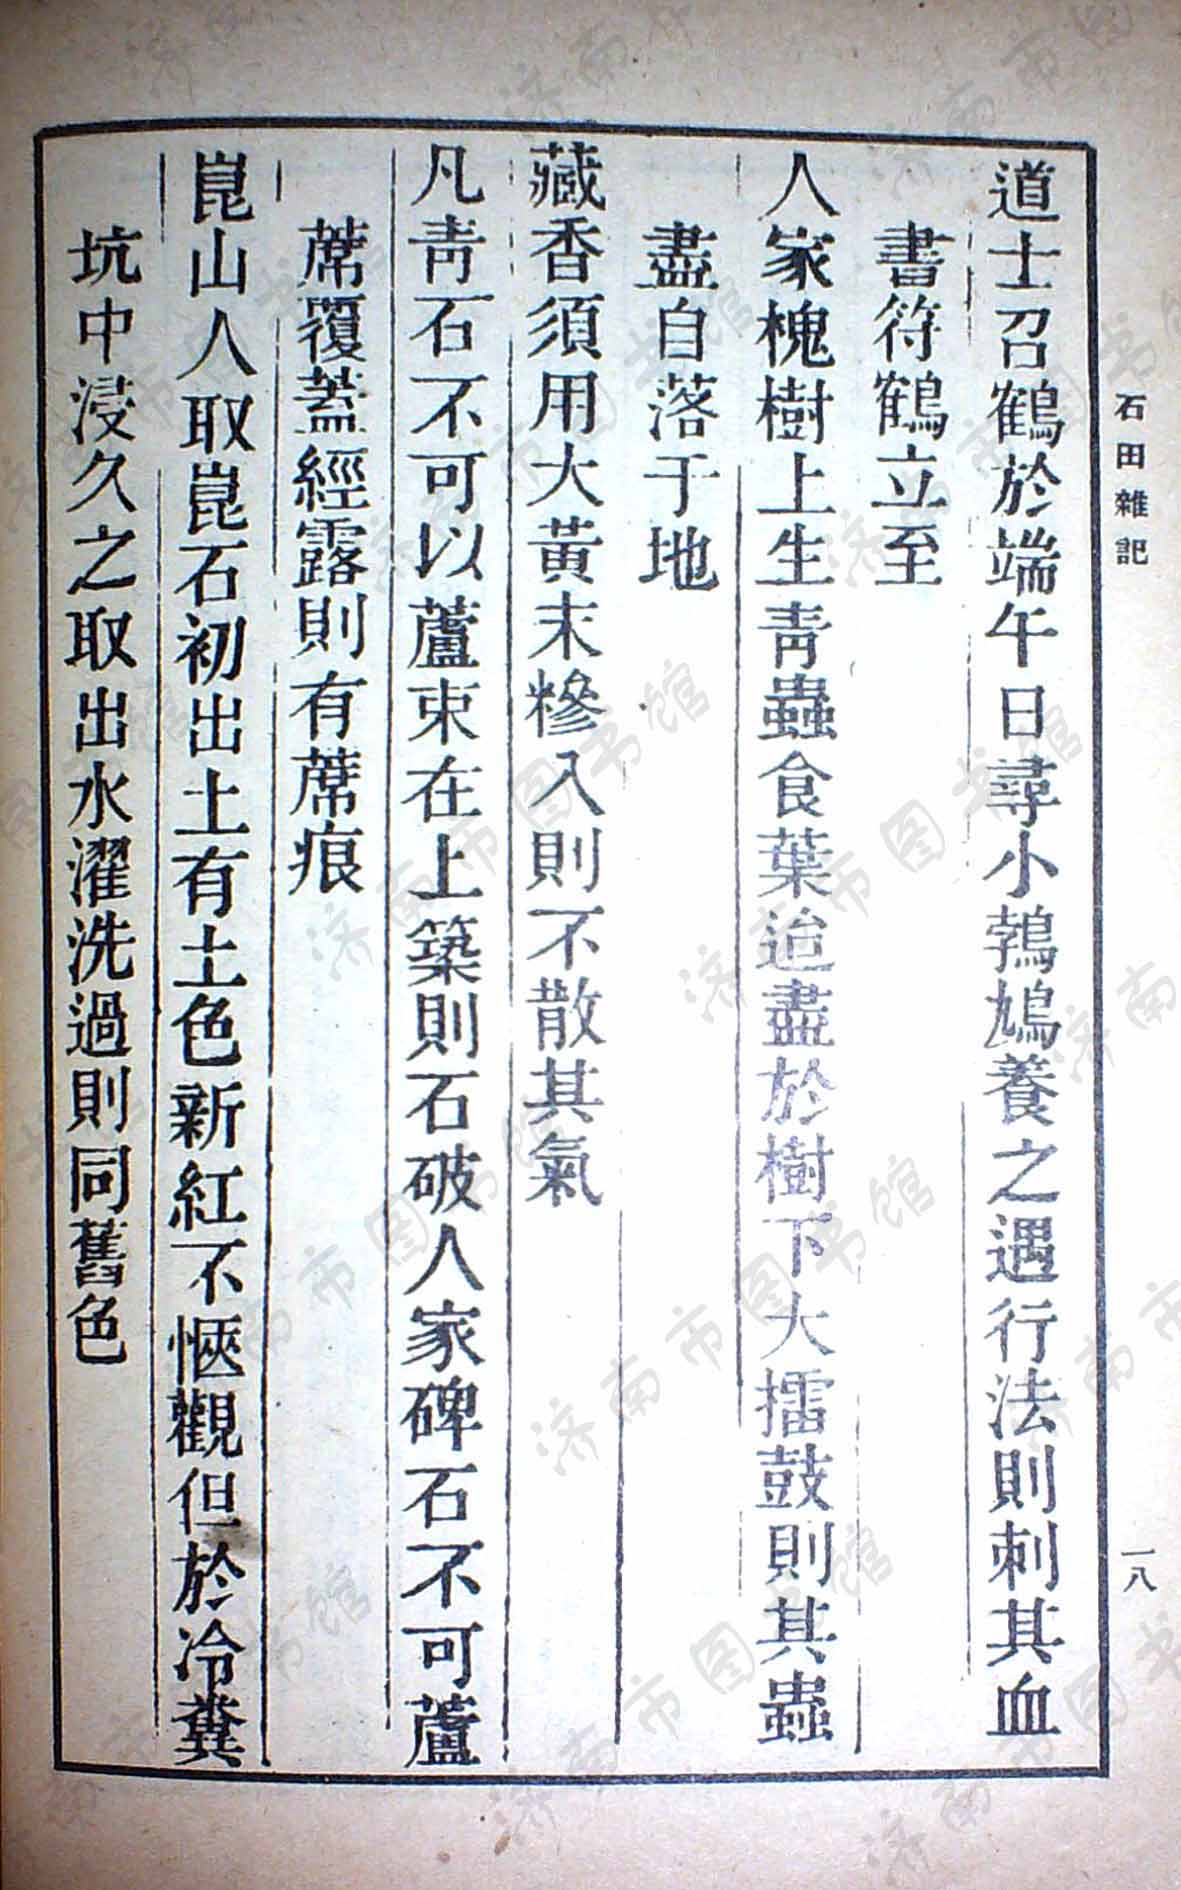 石田雜記
道士召鶴於端午日尋小鵓鳩養之遇行法則刺其血
書符鶴立至
人家槐樹上生青蟲食葉迨盡於樹下大擂鼓則其蟲
盡自落于地
藏香須用大黃末糝入則不散其氣
凡青石不可以蘆束在上築則石破人家碑石不可蘆
蓆覆蓋經露則有蓆痕
崑山人取崑石初出土有土色新紅不愜觀但於冷糞
坑中浸久之取出水濯洗過則同舊色
一八
济南市图书馆